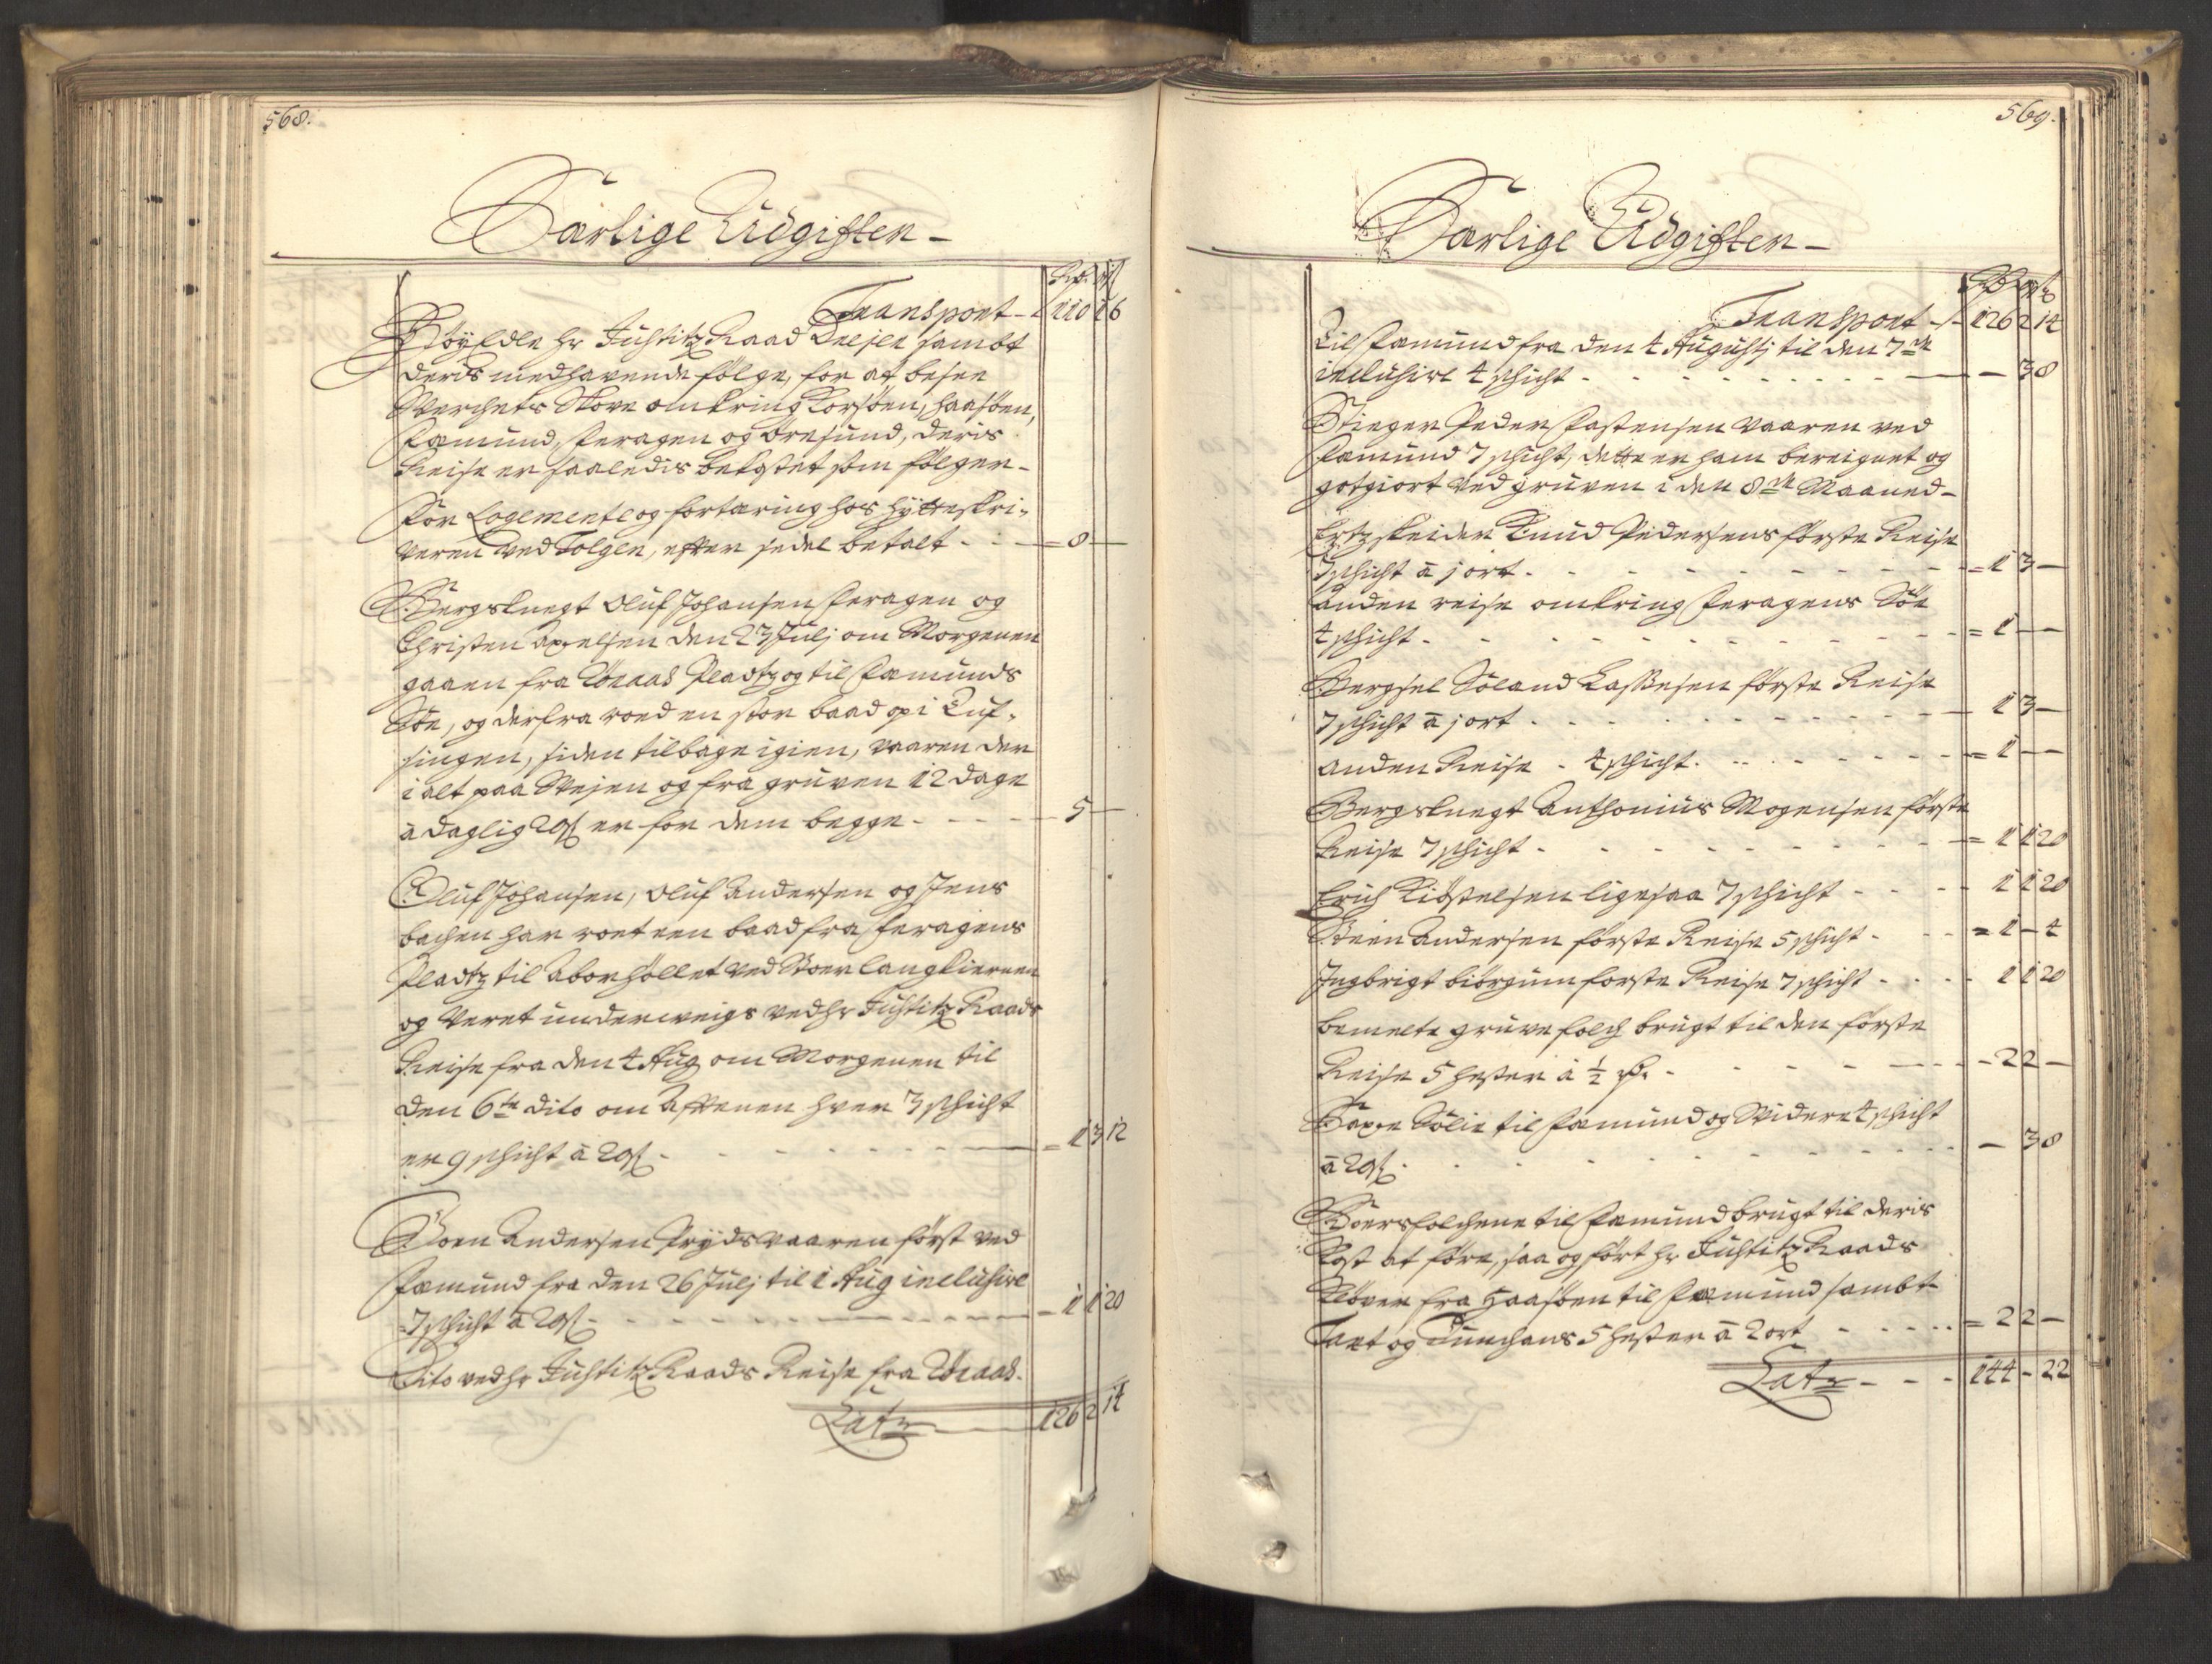 568.
Særlige Udgifter -
Rdr. ort ß
Transport - 110 1 6
Høyædle Hr Justitz Raad Dreyer sambt
deris medhavende følge, for at besee
Werchets Skove omkring Korsøen, Haasøen,
Fæmund, Feragen og Øresund, deris
Reise er saaledis bekostet som følger -
For Logemente og fortæring hos Hytteskri-
veren ved Tolgen, efter sedel betalt - - 8 -
Bergsknegt Oluf Johansen Feragen og
Christen Axelsen den 23 Julj om Morgenen
gaaen fra Røraas Pladtz og til Fæmunds
Søe, og derfra roed en stor baad op i Tuf-
singen, siden tilbage igien, vaaren der
i alt paa Weyen og fra gruven 12 dage
à daglig 20 ß er for dem begge - - - 5 -
Oluf Johansen, Oluf Andersen og Jens
bachen har roet een baad fra Feragens
Pladtz til Aborhøllet ved Stoer Langkiernen
og veret underweigs ved Hr Justitz Raads
Reise fra den 4 Aug om Morgenen til
den 6te dito om Aftenen hver 3 schicht
er 9 schicht à 20 ß - - - 1 3 12
Soen Andersen Pryds vaaren først ved
Fæmund fra den 26 Julj til 1 Aug inclusive
7 schicht à 20 ß - - - 1 1 20
Dito ved Hr Justitz Raads Reise fra Røraas -
Latz - 126 2 14
569.
Særlige Udgifter -
Rdr ort ß
Transport - 126 2 14
Til Fæmund fra den 4 Augustj til den 7de
inclusive 4 schicht - - - - 3 8
Stieger Peder Fastensen vaaren ved
Fæmund 7 schicht, dette er ham bereignet og
gotgiort ved gruven i den 8de Maaned -
Ertzskeider Knud Pedersens første Reise
7 schicht à 1 ort - - - 1 3 -
Anden reise omkring Feragens Søe
4 schicht - - - 1 - -
Bergsel Søland Lassesen første Reise
7 schicht à 1 ort - - - 1 3 -
Anden Reise - 4 schicht - - - 1 - -
Bergsknegt Anthonius Mogensen første
Reise 7 schicht - - - 1 1 20
Erich Kiøstelsen ligesaa 7 schicht - - - 1 1 20
Steen Andersen første Reise 5 schicht - - 1 - 4
Ingbrigt biørgum første Reise 7 schicht - - - 1 1 20
bemelte gruve folch brugt til den første
Reise 5 hester à ½ Rdr. - - - 2 2 -
Saxe Sølie til Fæmund og Widere 4 schicht
à 20 ß - - - - 3 8
Roersfolchene til Fæmund brugt til deris
Kost at føre, saa og ført Hr Justitz Raads
Kløver fra Haasøen til Fæmund sambt
Taet og Dunchans 5 hester à 2 ort - - - 2 2 -
Latz - - - 144 - 22